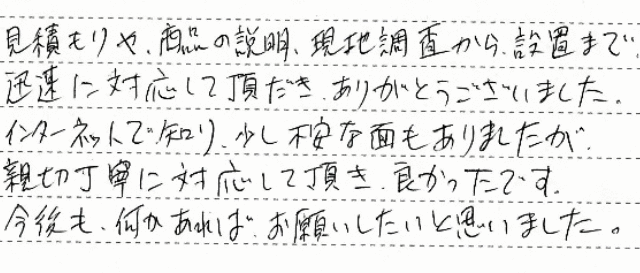 見積もりや、商品の説明、現地調査から、設置まで、
迅速に対応して頂だき、ありがとうございました。
インターネットで知り、少し不安な面もありましたが、
親切丁寧に対応して頂き、良かったです。
今後も、何かあれば、お願いしたいと思いました。